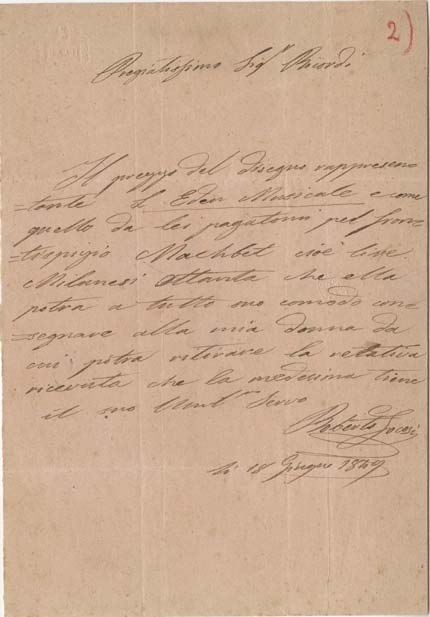 2)
Pregiatissimo Sig.r Ricordi
Il prezzo del disegno rappresen
=tante L'Eden Musicale e come
quello da lei pagatomi pel fron=
=tispizio Machbet cioè lire
Milanesi Ottanta che ella
potra a tutto suo comodo con
=segnare alla mia donna da
cui potra ritirare la relativa
ricevuta che la medesima tiene
il suo Uml.mo Servo
Roberto Focosi
li 18 Giugno 1849